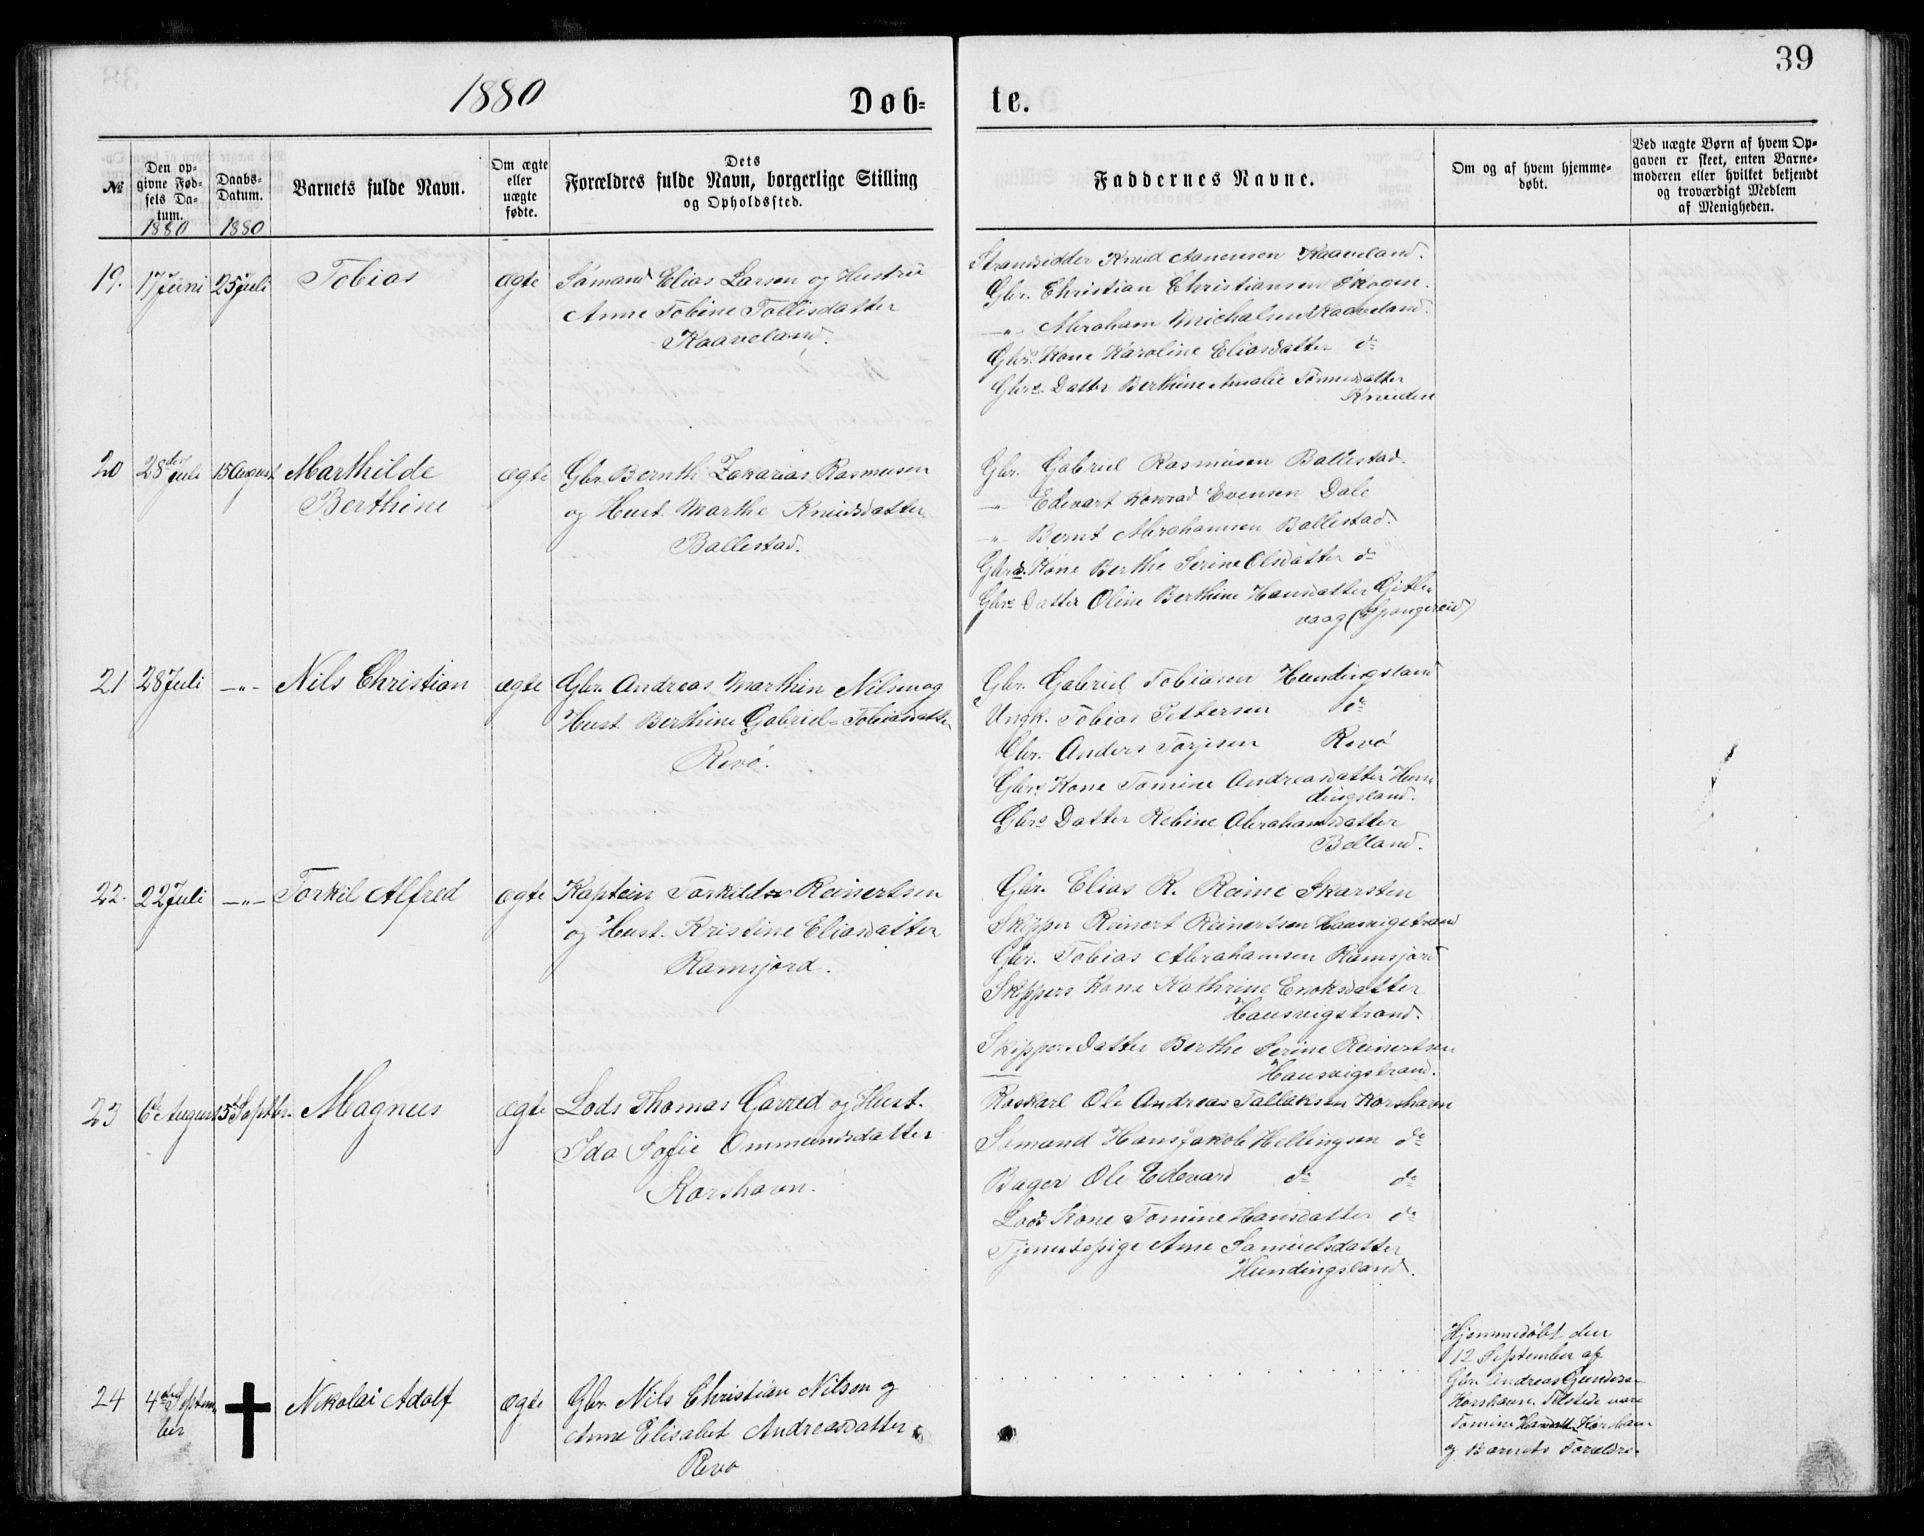 39
1880
Døb-
te.
№
Den op-
givne Fød-
sels Da-
tum.
1880
Daabs-
Datum.
1880
Barnets fulde Navn.
Om ægte
eller
uægte
fødte.
Dets
Forældres fulde Navn, borgerlige Stilling
og Opholdssted.
Faddernes Navne.
Om og af hvem hjemme-
døbt.
Ved uægte Børn af hvem Op-
gaven er skeet, enten Barne-
moderen eller hvilket bekjendt
og troværdigt Medlem
af Menigheden.
19. 17 Juni 25 Juli Tobias ægte Sømand Elias Larsen og Hustru
Anne Tobine Tollisdatter
Kaaveland.
Strandsidder Knud Aanensen Kaaveland.
Gbr. Christian Christiansen Skogen.
-"- Abraham Michalsen Kaaveland.
Gbrs. Kone Karoline Eliasdatter do
Gbrs. Datter Berthine Amalie Tønnesdatter
20 28de Juli 15 August Marthilde
Berthine
ægte Gbr. Bernth Zakarias Rasmusen
og Hust. Marthe Knudsdatter
Ballestad.
Gbr. Gabriel Rasmusen Ballestad.
-"- Edevart Konrad Evensen Dale
-"- Bernt Abrahamsen Ballestad.
Gbrs. Kone Berthe Serine Olsdatter do
Gbrs Datter Oline Berthine Hansdatter Gitle-
vaag (Spangereid)
21 28 Juli -"- Nils Christian ægte Gbr. Andreas Marthin Nilsen og
Hust. Berthine Gabriel- Tobiasdatter
Revø.
Gbr. Gabriel Tobiasen Hundingsland
Ungk. Tobias Pettersen do
Gbr. Anders Torjesen Revø
Gbrs Kone Tomine Andreasdatter Hun
dingsland.
Gbrs Datter Rebine Abrahamsdatter
22. 22 Juli -"- Torkil Alfred ægte Kaptein Torkild Reinertsen
og Hust. Kristine Eliasdatter
Ramsjord.
Gbr. Elias R. Reime Skarsten
Skipper Reinert Reinertsen Hausvigstrand
Gbr. Tobias Abrahamsen Ramsjord
Skippers Kone Kathrine Enoksdatter
Hausvigstrand.
Skippers Datter Berthe Serine Reinertsen
Hausvigstrand.
23 6te August 5te Septbr. Magnus ægte Lods Thomas Garred og Hust.
Ida Sofie Ommundsdatter
Korshavn.
Ole Andreas Tallaksen Korshavn
Sømand Hans Jakob Hellingsen do
Bager Ole Edevard do do
Lods Kone Tomine Hansdatter do
Tjenestepige Ane Samuelsdatter
Hundingsland.
24 4de Septem-
ber
Nikolai Adolf ægte Gbr. Nils Christian Nilsen og
Anne Elisabet Andreasdatter
Revø
Hjemmedøbt den
12 September af
Gbr. Andreas Gunders-
Korshavn. Tilstede vare
Tomine Hansdtt. Korshavn
og Barnets Forældre.